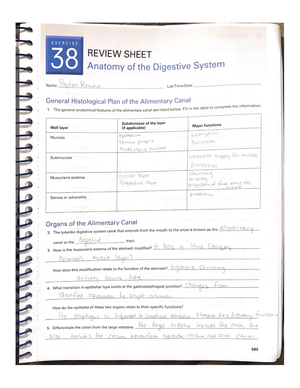 EXERCISE
38
REVIEW SHEET
Anatomy of the Digestive System
Name
Lab Time/Date
General Histological Plan of the Alimentary Canal
1. The general anatomical features of the alimentary canal are listed below. Fill in the table to complete the information.
Wall layer
Subdivisions of the layer (if applicable)
Major functions
Mucosa
epithelium
lamina propria
muscularis mucosae
absorption
Submucosa
vascular supply for mucosa
protection
Muscularis externa
circular layer
longitudinal layer
churning
mixing
propulsion of food along the
Serosa or adventitia
protection
Organs of the Alimentary Canal
2. The tubelike digestive system canal that extends from the mouth to the anus is known as the alimentary
canal or the digestive tract.
3. How is the muscularis externa of the stomach modified? it has a third
muscle layer
How does this modification relate to the function of the stomach? vigorous churning
activity occurs here
4. What transition in epithelial type exists at the gastroesophageal junction? changes from
stratified squamous to simple columnar
How do the epithelia of these two organs relate to their specific functions?
The esophagus is subjected to constant abrasion. Stomach has secretory function
5. Differentiate the colon from the large intestine. the large intestine includes the colon, but
also includes the cecum, vermiform appendix, rectum and anal canal
593